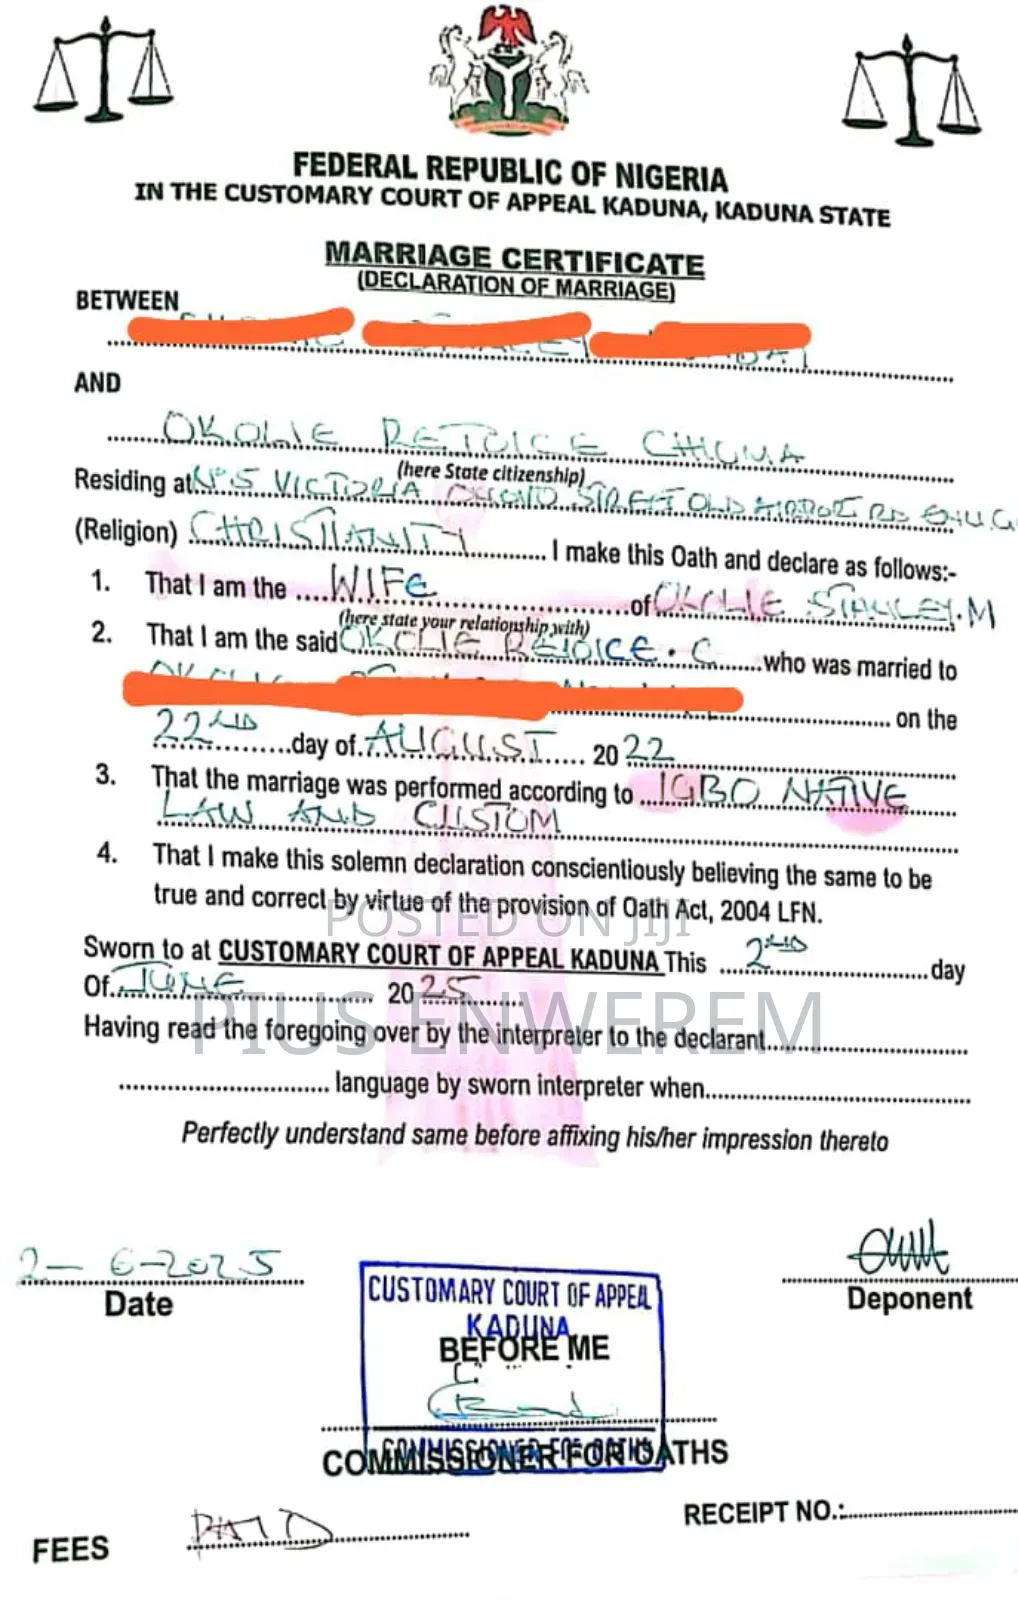 FEDERAL REPUBLIC OF NIGERIA
IN THE CUSTOMARY COURT OF APPEAL KADUNA, KADUNA STATE
MARRIAGE CERTIFICATE
(DECLARATION OF MARRIAGE)
BETWEEN
AND
OKOLIE REJOICE CHIUMA
(here State citizenship)
Residing at No 5 VICTORIA STREET OLD AIRPORT RD
(Religion) CHRISTIANITY I make this Oath and declare as follows:-
1. That I am the WIFE of OKOLIE STANLEY.M
(here state your relationship with)
2. That I am the said OKOLIE REJOICE. C who was married to
on the
22ND day of AUGUST 2022
3. That the marriage was performed according to IGBO NATIVE
LAW AND CUSTOM
4. That I make this solemn declaration conscientiously believing the same to be
true and correct by virtue of the provision of Oath Act, 2004 LFN.
POSTED ON JIJI
Sworn to at CUSTOMARY COURT OF APPEAL KADUNA This 2ND day
Of JUNE 2025
PIUS ENWEREM
Having read the foregoing over by the interpreter to the declarant
language by sworn interpreter when
Perfectly understand same before affixing his/her impression thereto
2-6-2025
Date
Deponent
CUSTOMARY COURT OF APPEAL
KADUNA
BEFORE ME
COMMISSIONER FOR OATHS
COMMISSIONER FOR OATHS
FEES PAID
RECEIPT NO.: